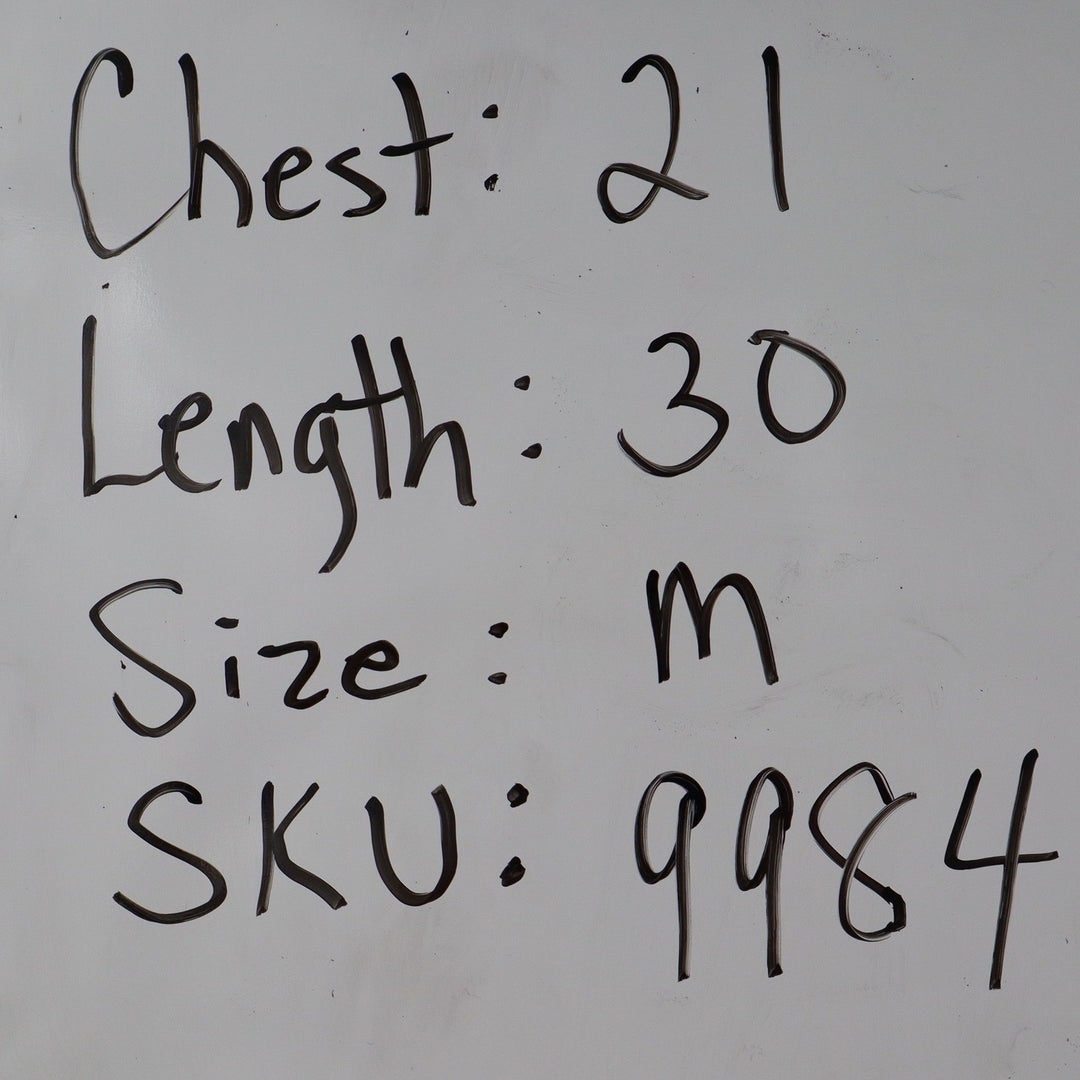 Chest: 21
Length: 30
Size: M
SKU: 9984